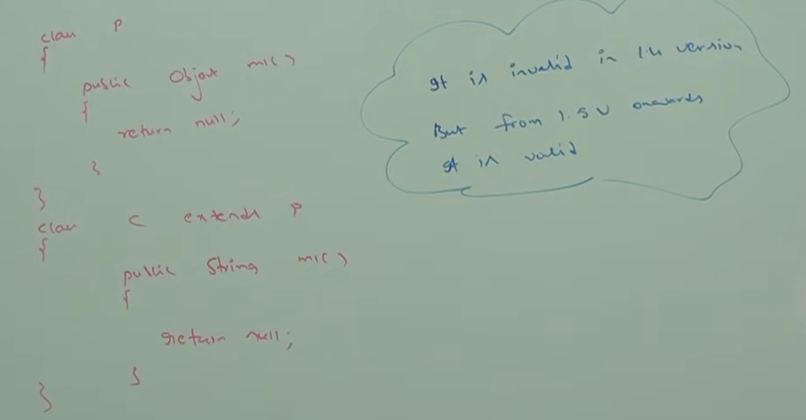 class P
{
public Object m1()
{
return null;
}
}
class C extends P
{
public String m1()
{
return null;
}
}
It is invalid in 1.4 version
But from 1.5 V onwards
It is valid